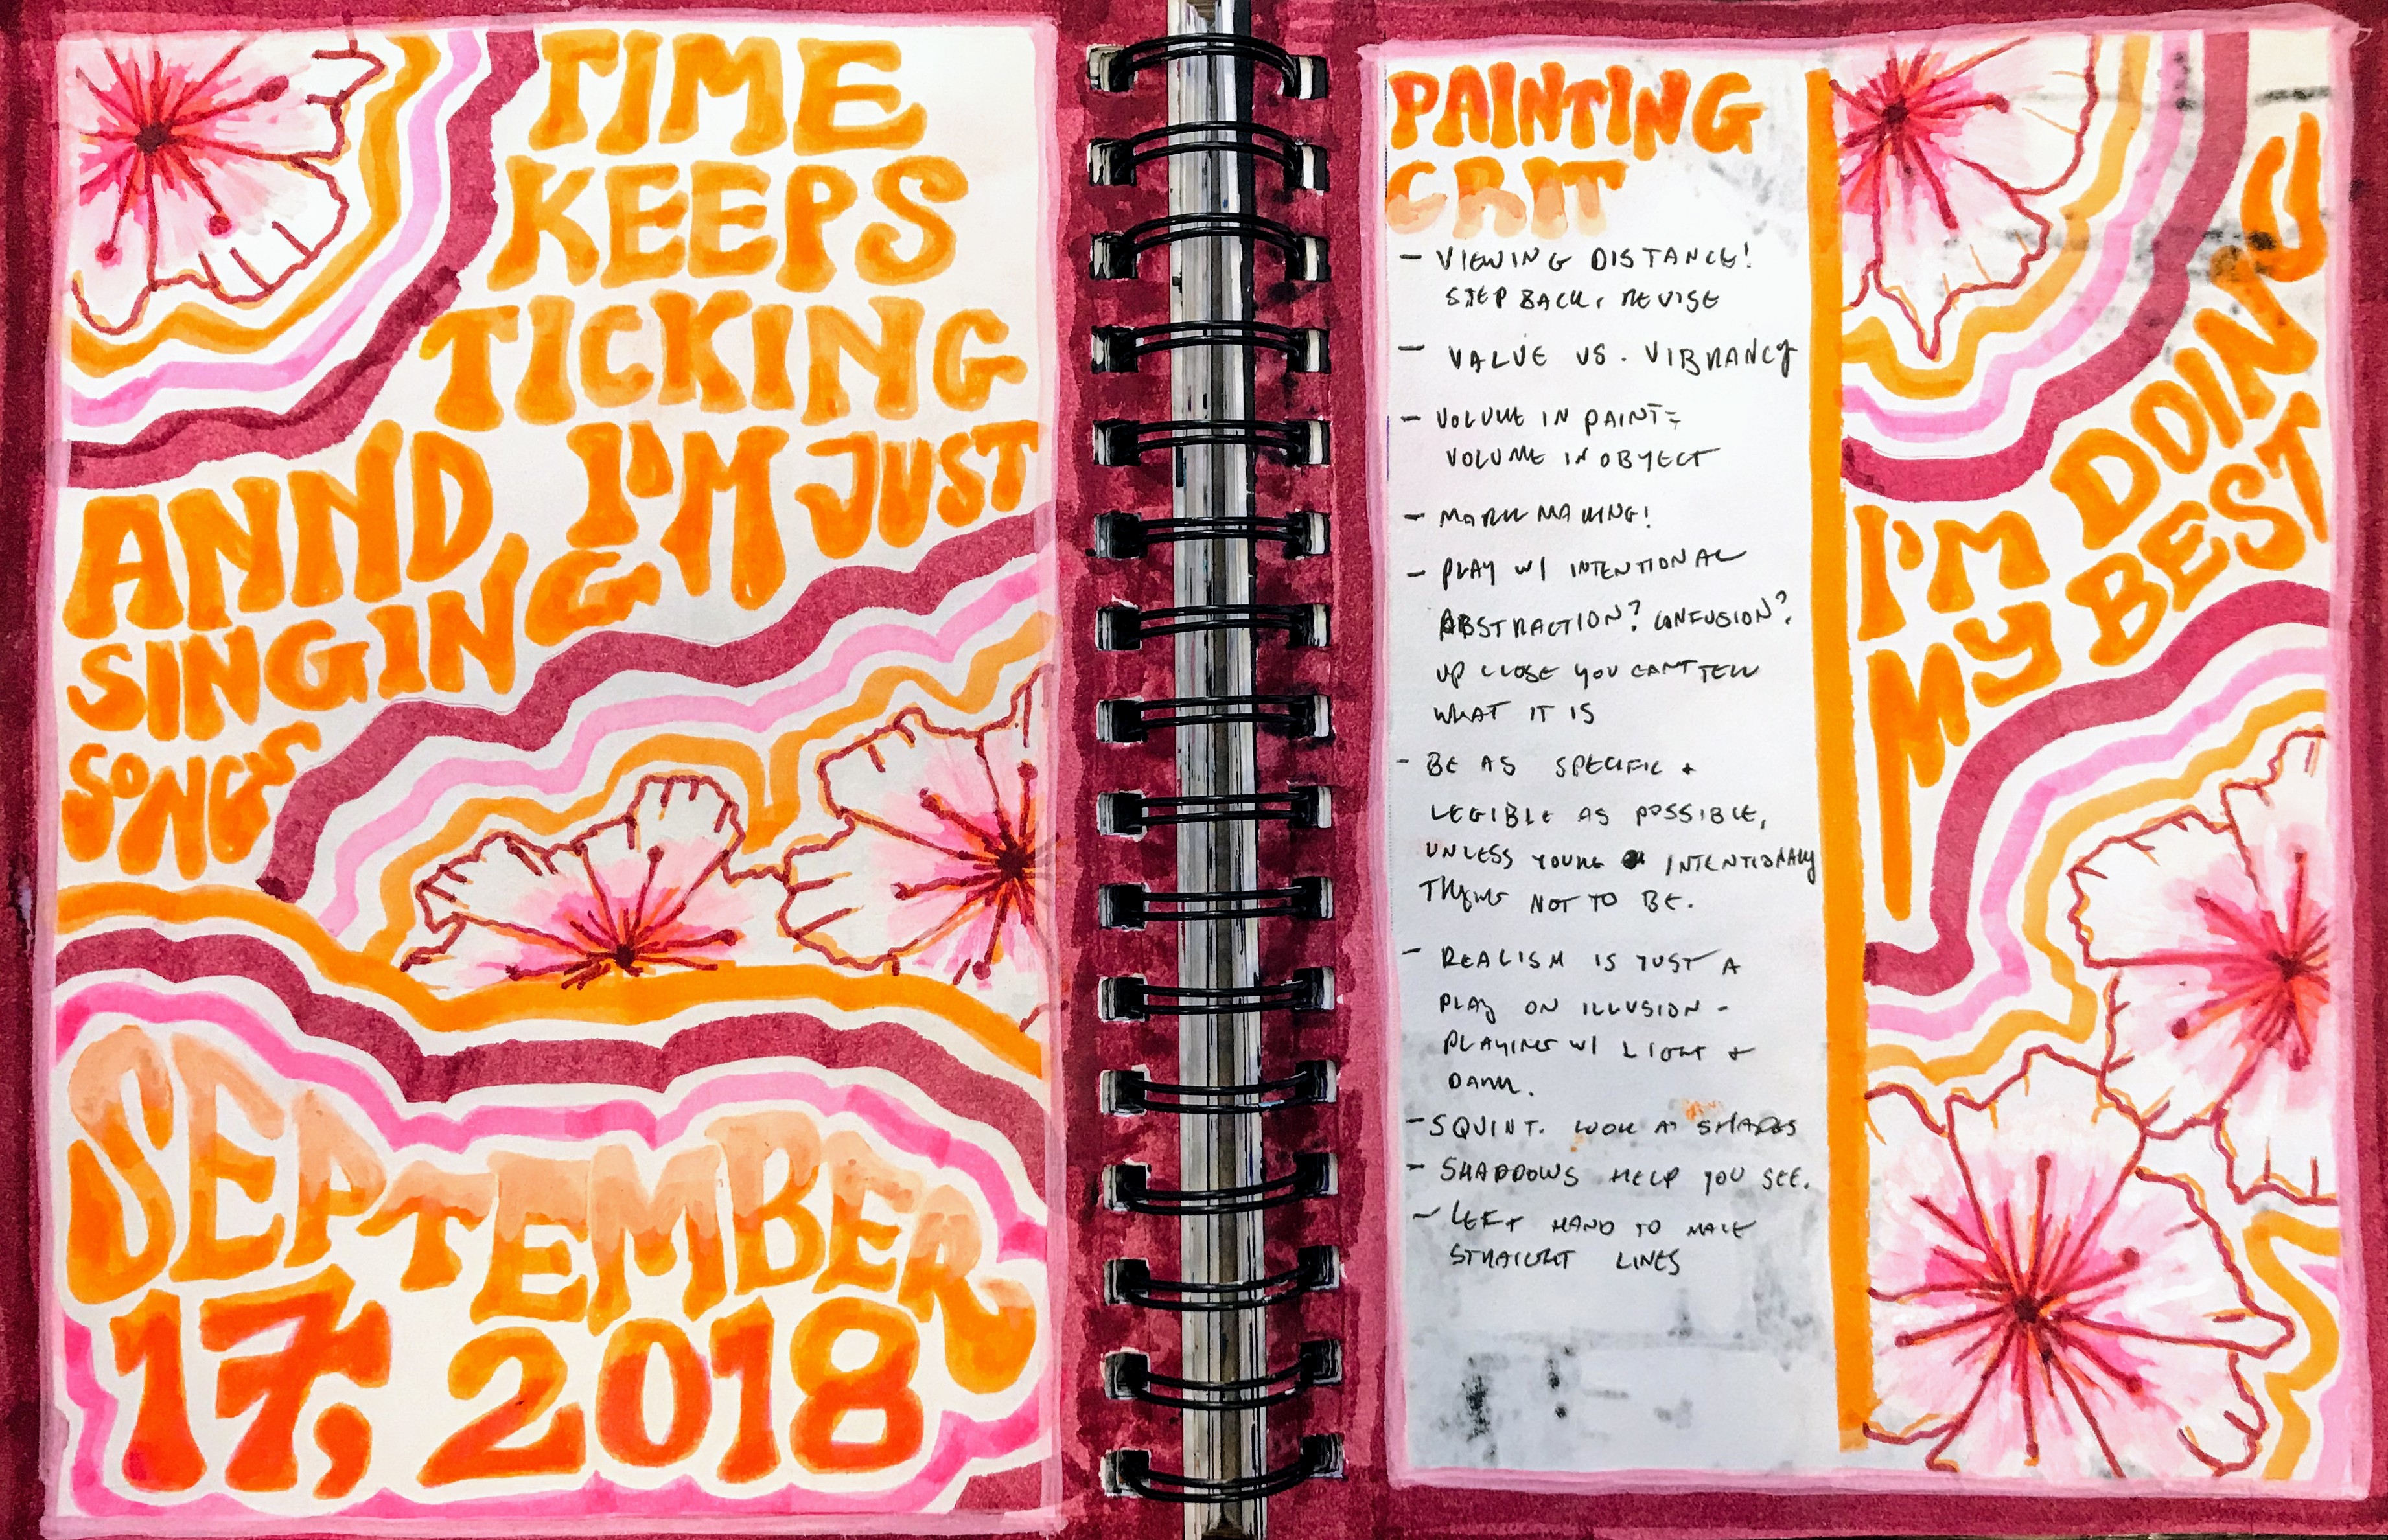 TIME
KEEPS
TICKING
ANND I'M JUST
SINGING
SONGS
SEPTEMBER
17, 2018
PAINTING
CRIT
- VIEWING DISTANCE!
STEP BACK, REVISE
- VALUE VS. VIBRANCY
- VOLUME IN PAINT =
VOLUME IN OBJECT
- MARK MAKING!
- PLAY W/ INTENTIONAL
ABSTRACTION? CONFUSION?
UP CLOSE YOU CANT TELL
WHAT IT IS
- BE AS SPECIFIC +
LEGIBLE AS POSSIBLE,
UNLESS YOURE INTENTIONALLY
TRYING NOT TO BE.
- REALISM IS JUST A
PLAY ON ILLUSION -
PLAYING W/ LIGHT +
DARK.
- SQUINT. LOOK AT SHAPES
- SHADDOWS HELP YOU SEE.
- LEFT HAND TO MAKE
STRAIGHT LINES
I'M DOING
MY BEST